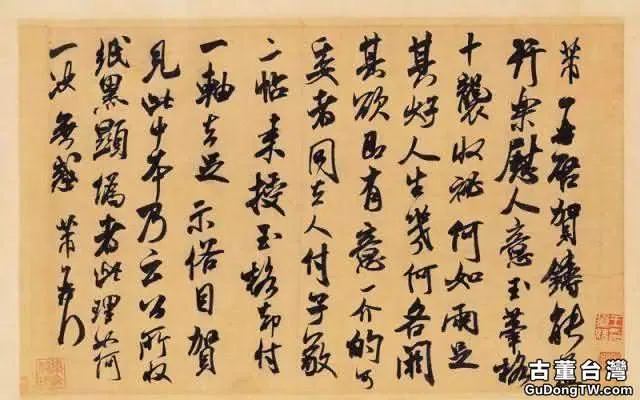 芾再啓賀鑄能
行樂慰人意玉筆格
十襲收祕何如兩足
其好人生幾何各閼
其欲即有意一介的可
委者同去人付子敬
二帖來授玉格却付
一軸去足示俗目賀
見此中本乃云公所收
紙黑顯偽者此理如何
一決無惑 芾再行
古董台灣
GuDongTW.com